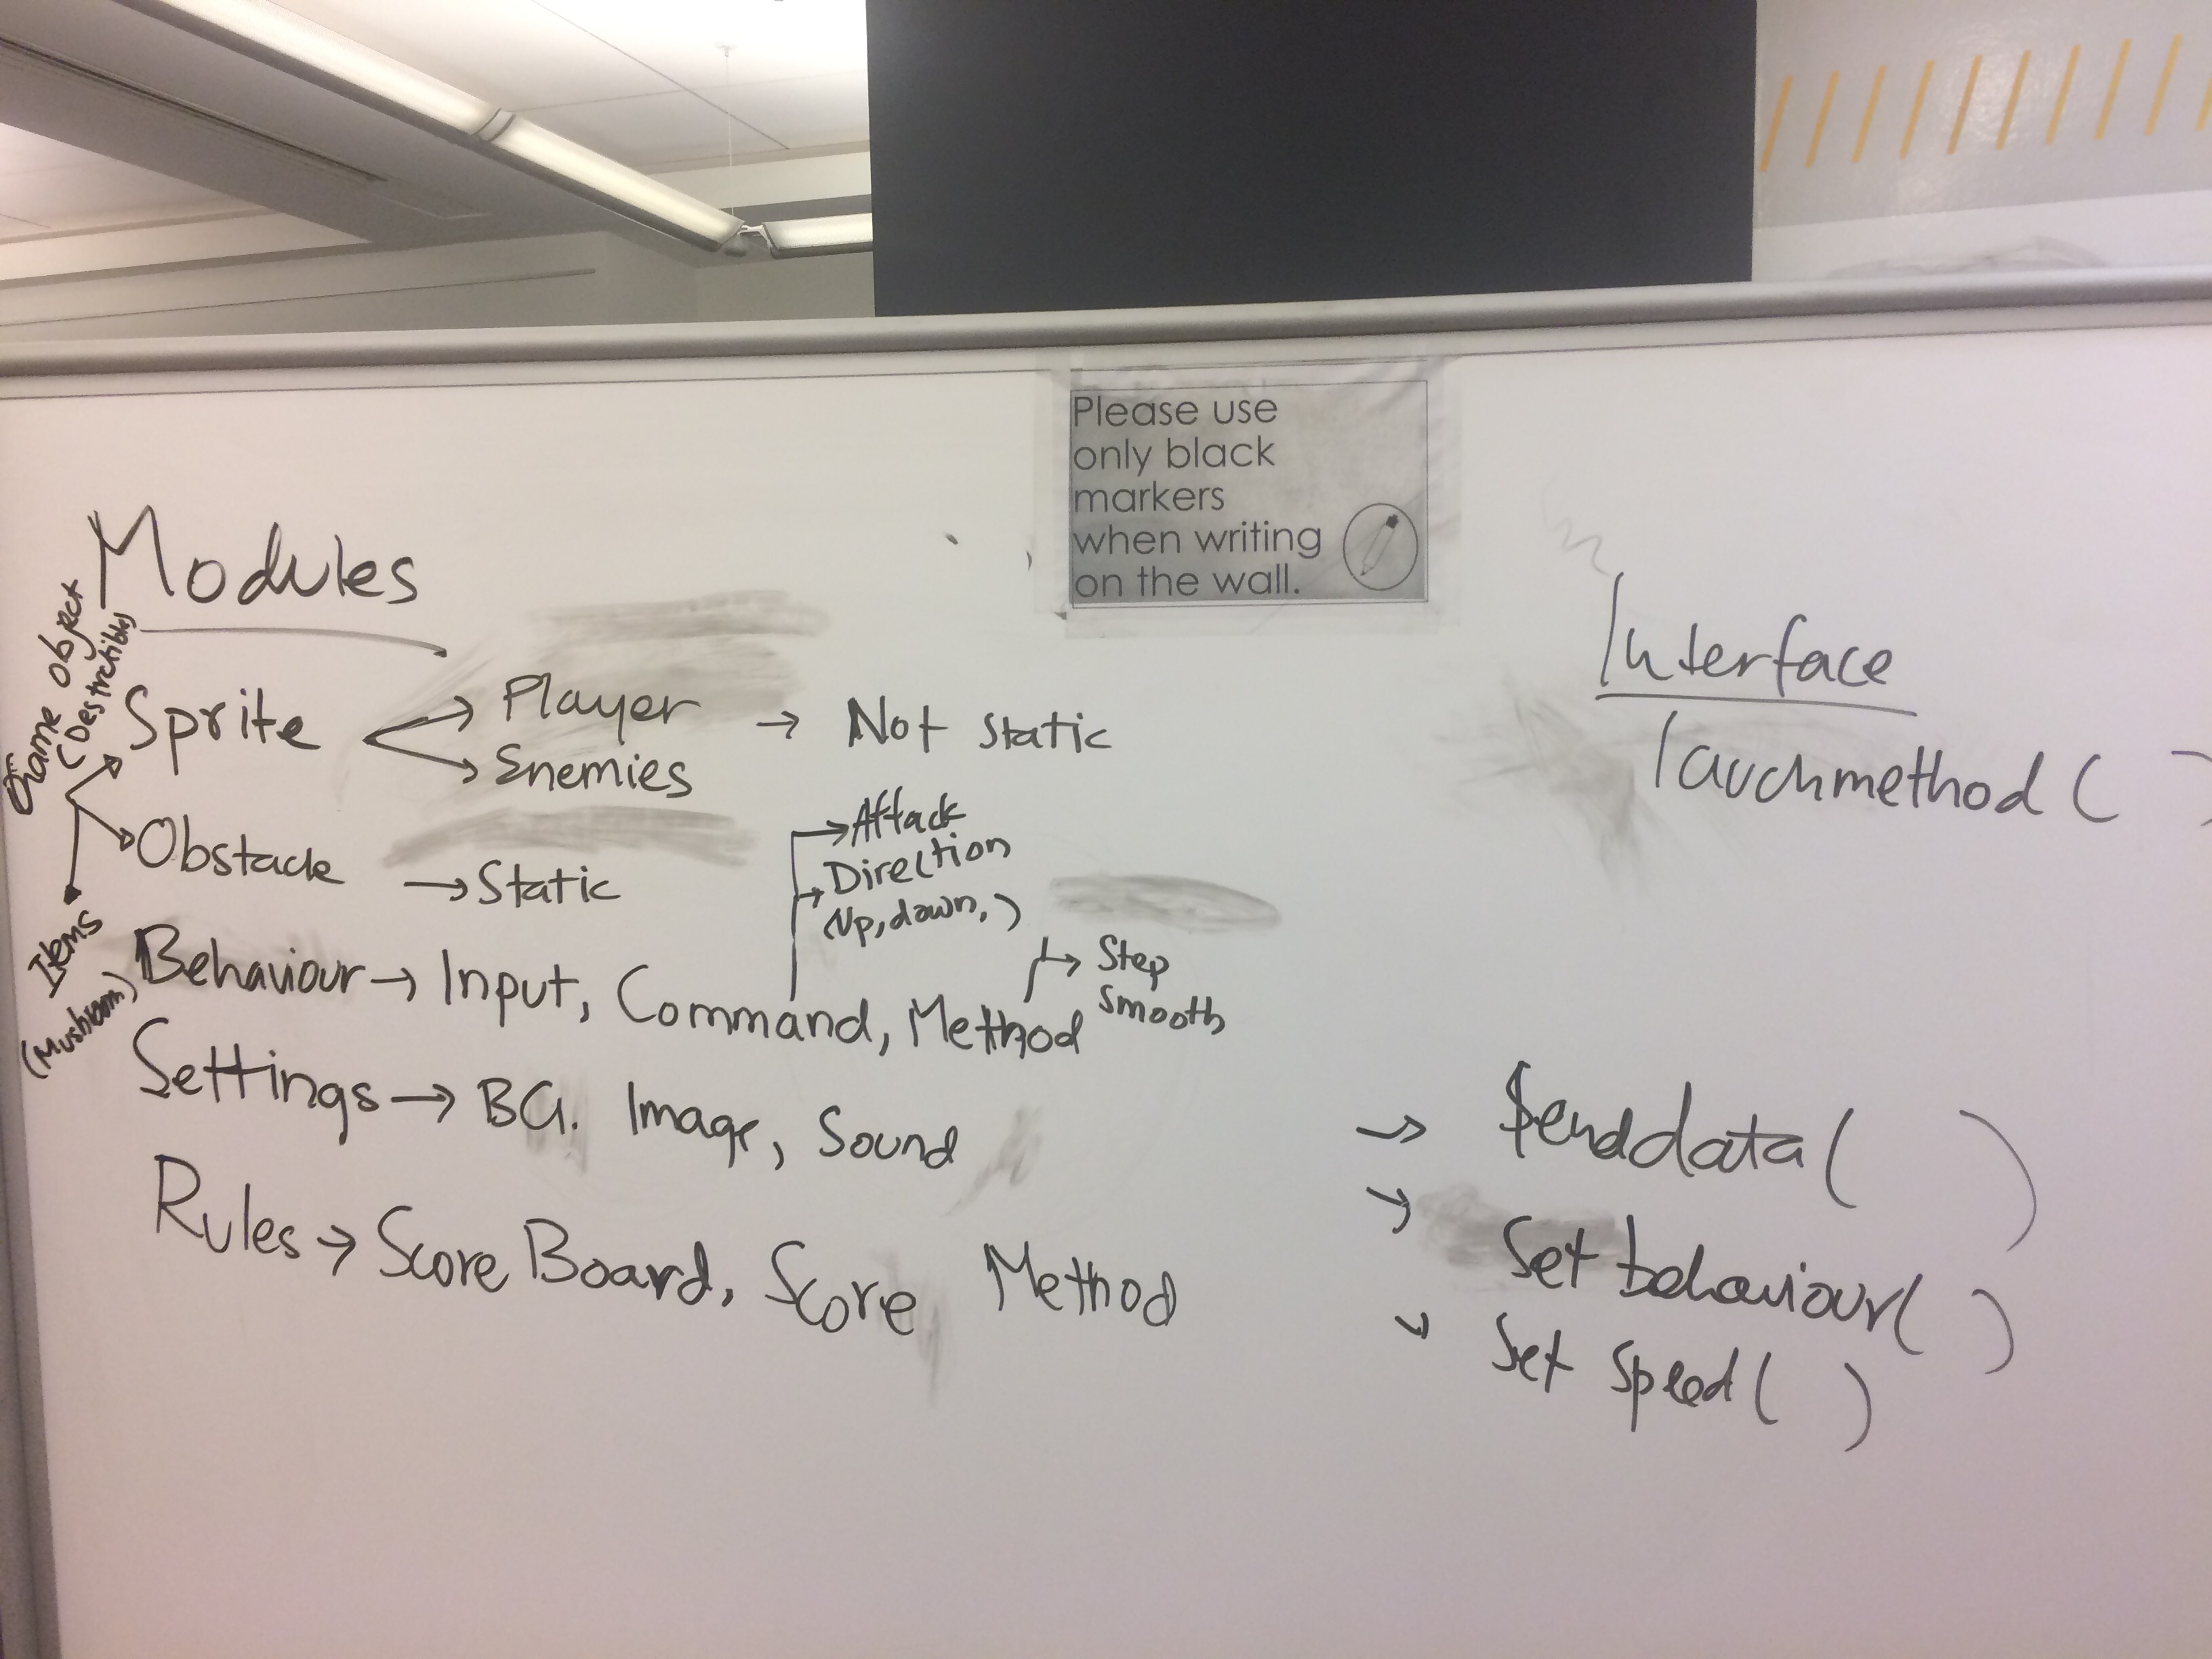 Please use
only black
markers
when writing
on the wall.
Modules
Game Object
(Destructible)
Sprite → Player → Not static
→ Enemies
Obstacle → Static
Items
(Mushroom)
→ Attack
→ Direction
(Up, down, )
Behaviour → Input, Command, Method
→ Step
smooth
Settings → BG. Image, Sound
Rules → Score Board, Score Method
Interface
lauchmethod ( )
→ Senddata ( )
→ Set behaviour( )
→ Set speed ( )